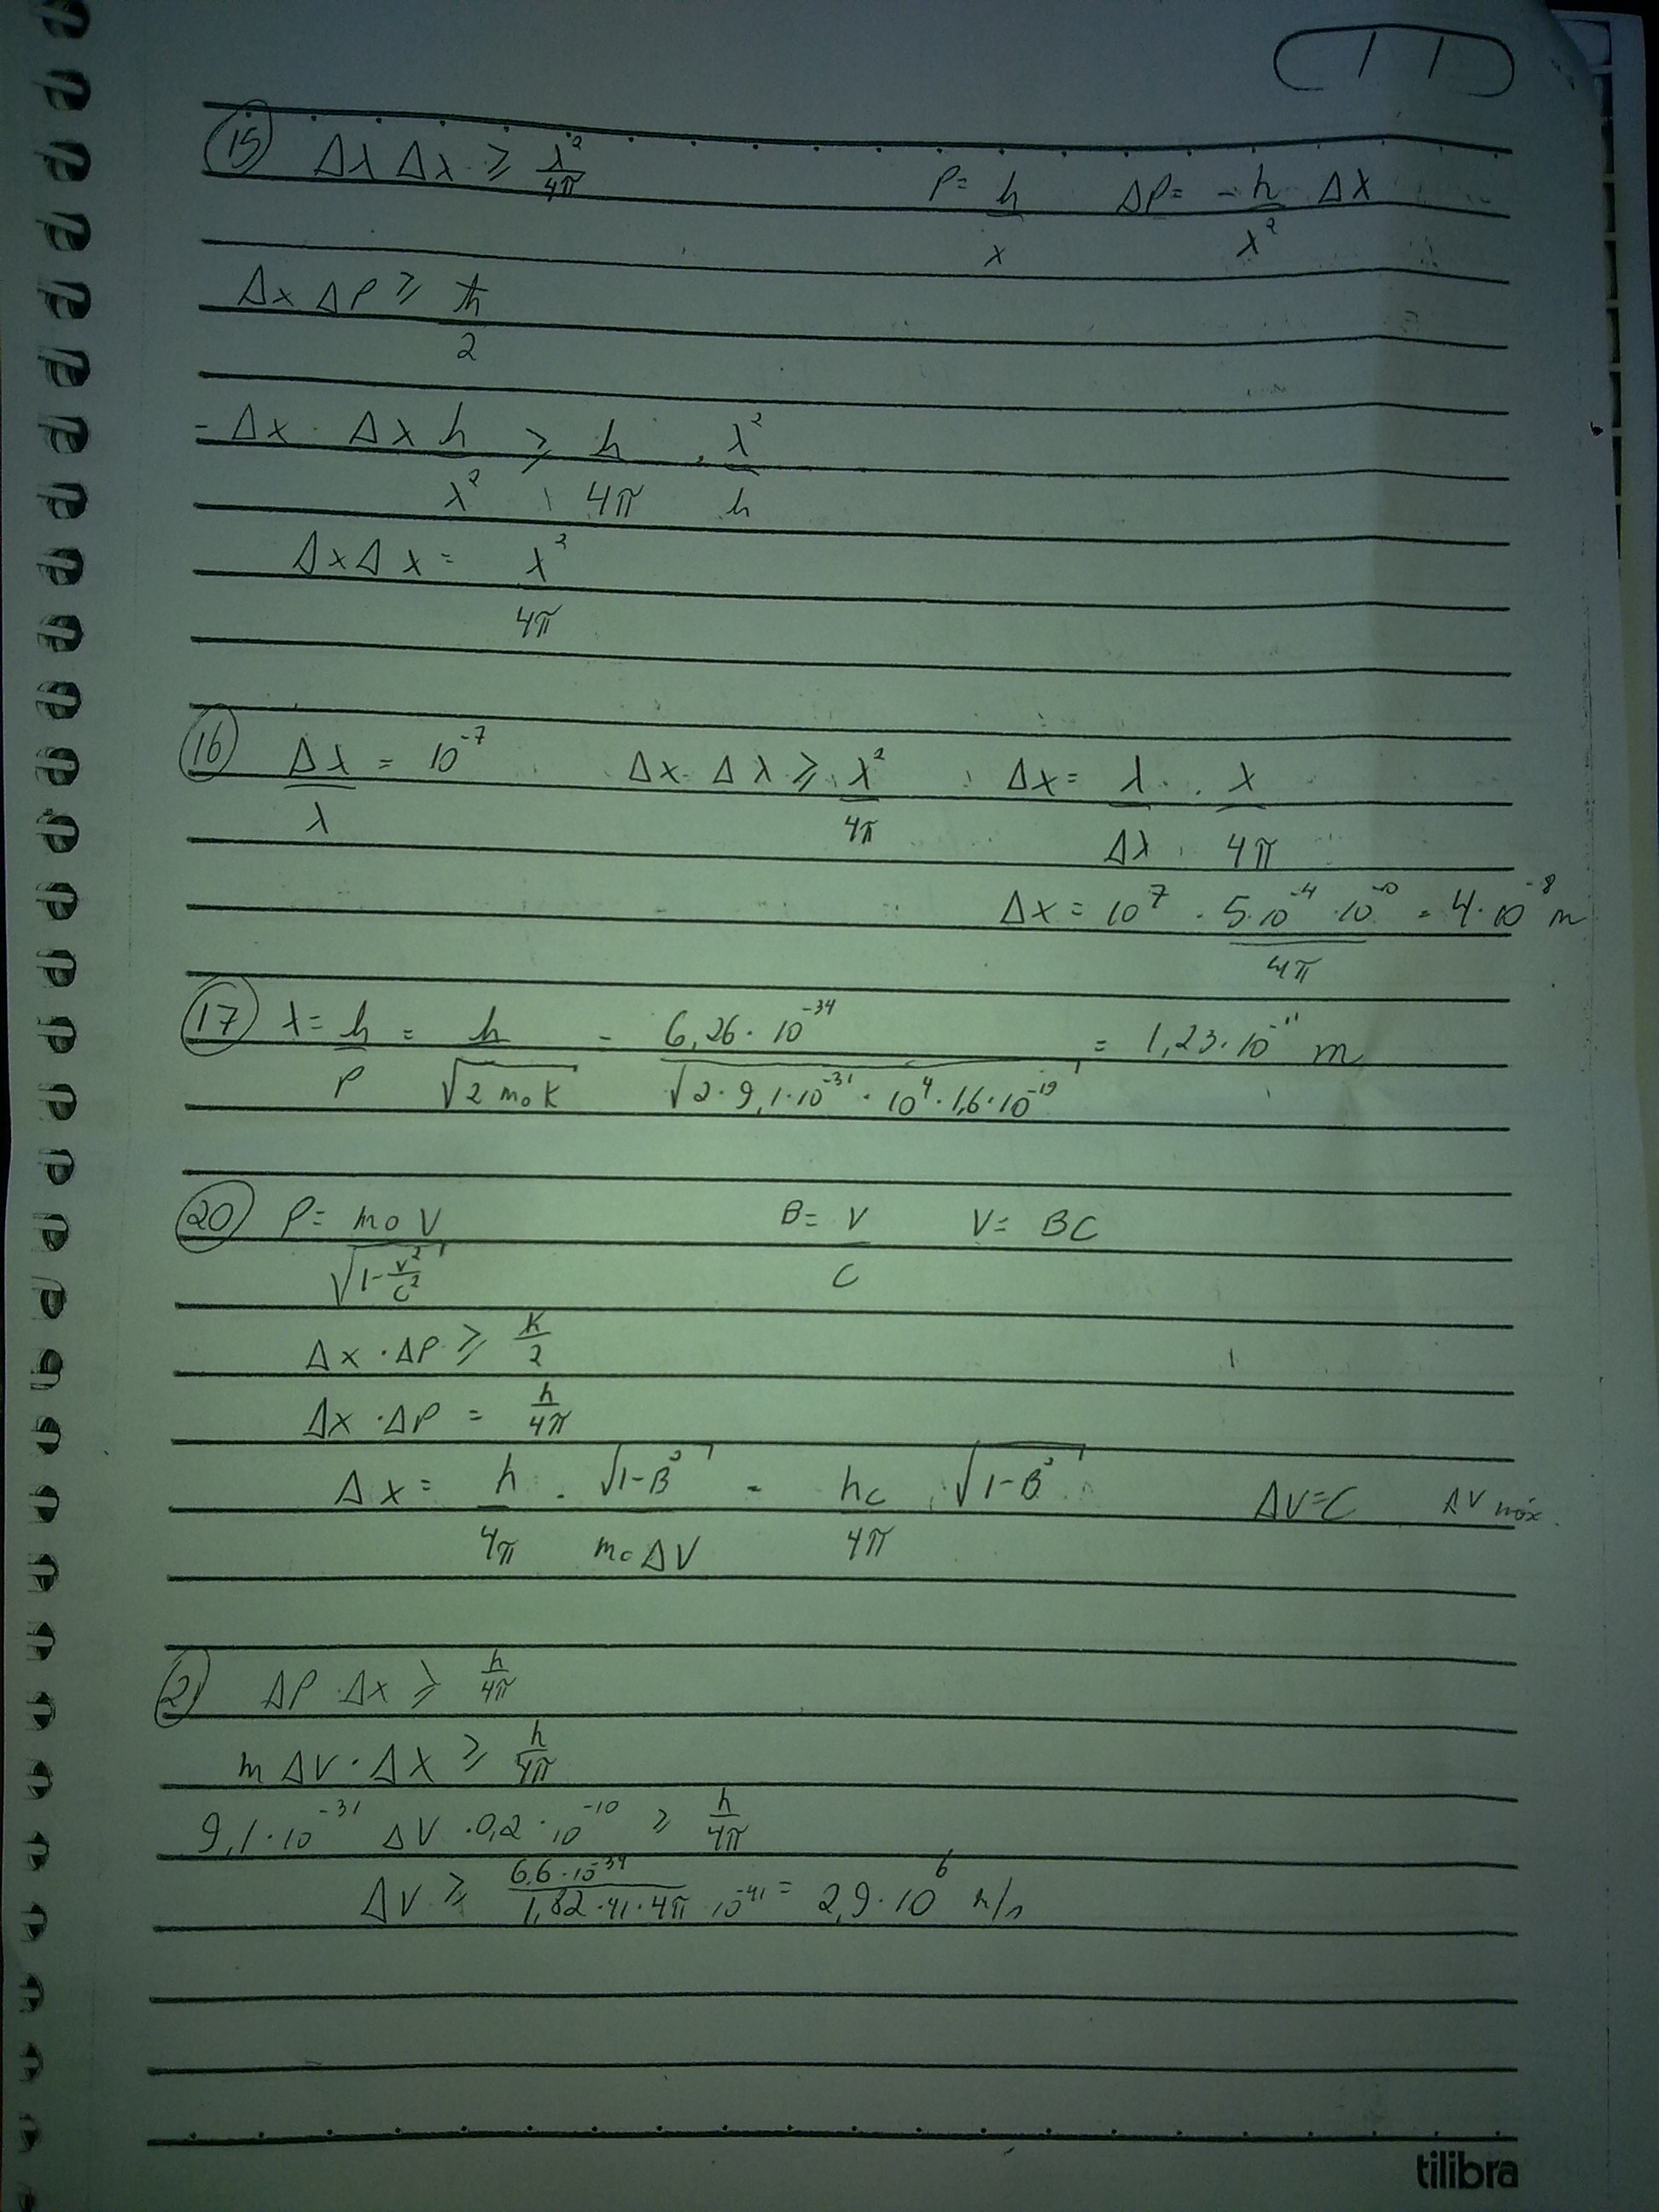 / /
15 Δλ Δx ≥ λ²/4π P = h/λ ΔP = -h/λ² Δλ
Δx ΔP ≥ ħ/2
- Δx · Δλ h/λ² ≥ h/4π · λ²/h
Δx Δλ = λ²/4π
16 Δλ/λ = 10⁻⁷ Δx · Δλ ≥ λ²/4π Δx = λ/Δλ · λ/4π
Δx = 10⁷ · 5·10⁻⁴ · 10⁻¹⁰/4π = 4·10⁻⁸ m
17 λ = h/P = h/√(2 m₀ K) = 6,26·10⁻³⁴/√(2·9,1·10⁻³¹·10⁴·1,6·10⁻¹⁹) = 1,23·10⁻¹¹ m
20 P = m₀ V/√(1-V²/C²) B = V/C V = BC
Δx · ΔP ≥ ħ/2
Δx · ΔP = h/4π
Δx = h/4π · √(1-B²)/m₀ ΔV = hc/4π √(1-B²) ΔV = C ΔV máx.
21 ΔP · Δx ≥ h/4π
m ΔV · Δx ≥ h/4π
9,1·10⁻³¹ ΔV · 0,2·10⁻¹⁰ ≥ h/4π
ΔV ≥ 6,6·10⁻³⁴/1,82·41·4π·10⁻⁴¹ = 2,9·10⁶ m/s
tilibra